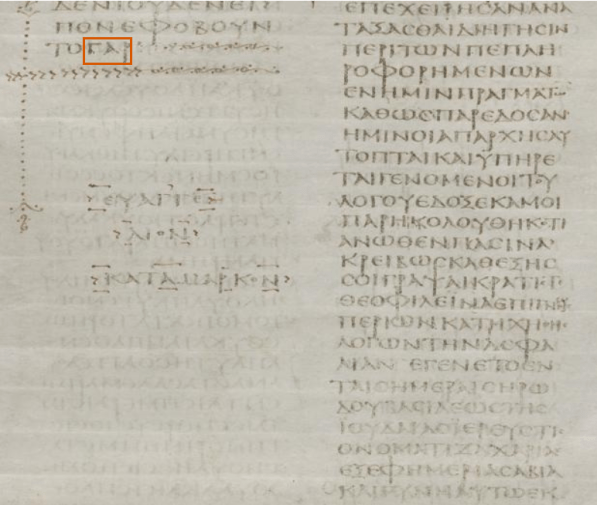 ΔΕΝΙΟΥΔΕΝΕΙ
ΠΟΝΕΦΟΒΟΥΝ
ΤΟΓΑΡ
ΕΥΑΓΓΕ
ΛΙΟΝ
ΚΑΤΑΜΑΡΚΟΝ
ΕΠΕΧΕΙΡΗϹΑΝΑΝΑ
ΤΑΞΑϹΘΑΙΔΙΗΓΗϹΙΝ
ΠΕΡΙΤΩΝΠΕΠΛΗ
ΡΟΦΟΡΗΜΕΝΩΝ
ΕΝΗΜΙΝΠΡΑΓΜΑΤΩ
ΚΑΘΩϹΠΑΡΕΔΟϹΑΝ
ΗΜΙΝΟΙΑΠΑΡΧΗϹΑΥ
ΤΟΠΤΑΙΚΑΙΥΠΗΡΕ
ΤΑΙΓΕΝΟΜΕΝΟΙΤΟΥ
ΛΟΓΟΥΕΔΟΞΕΚΑΜΟΙ
ΠΑΡΗΚΟΛΟΥΘΗΚΟΤΙ
ΑΝΩΘΕΝΠΑϹΙΝΑ
ΚΡΕΙΒΩϹΚΑΘΕΞΗϹ
ϹΟΙΓΡΑΨΑΙΚΡΑΤΙϹΤΕ
ΘΕΟΦΙΛΕΙΝΑΕΠΙΓΝΩϹ
ΠΕΡΙΩΝΚΑΤΗΧΗΘΗϹ
ΛΟΓΩΝΤΗΝΑϹΦΑ
ΛΙΑΝ ΕΓΕΝΕΤΟΕΝ
ΤΑΙϹΗΜΕΡΑΙϹΗΡΩ
ΔΟΥΒΑϹΙΛΕΩϹΤΗϹ
ΙΟΥΔΑΙΑϹΙΕΡΕΥϹΤΙϹ
ΟΝΟΜΑΤΙΖΑΧΑΡΙΑϹ
ΕΞΕΦΗΜΕΡΙΑϹΑΒΙΑ
ΚΑΙΓΥΝΗΑΥΤΩΕΚ